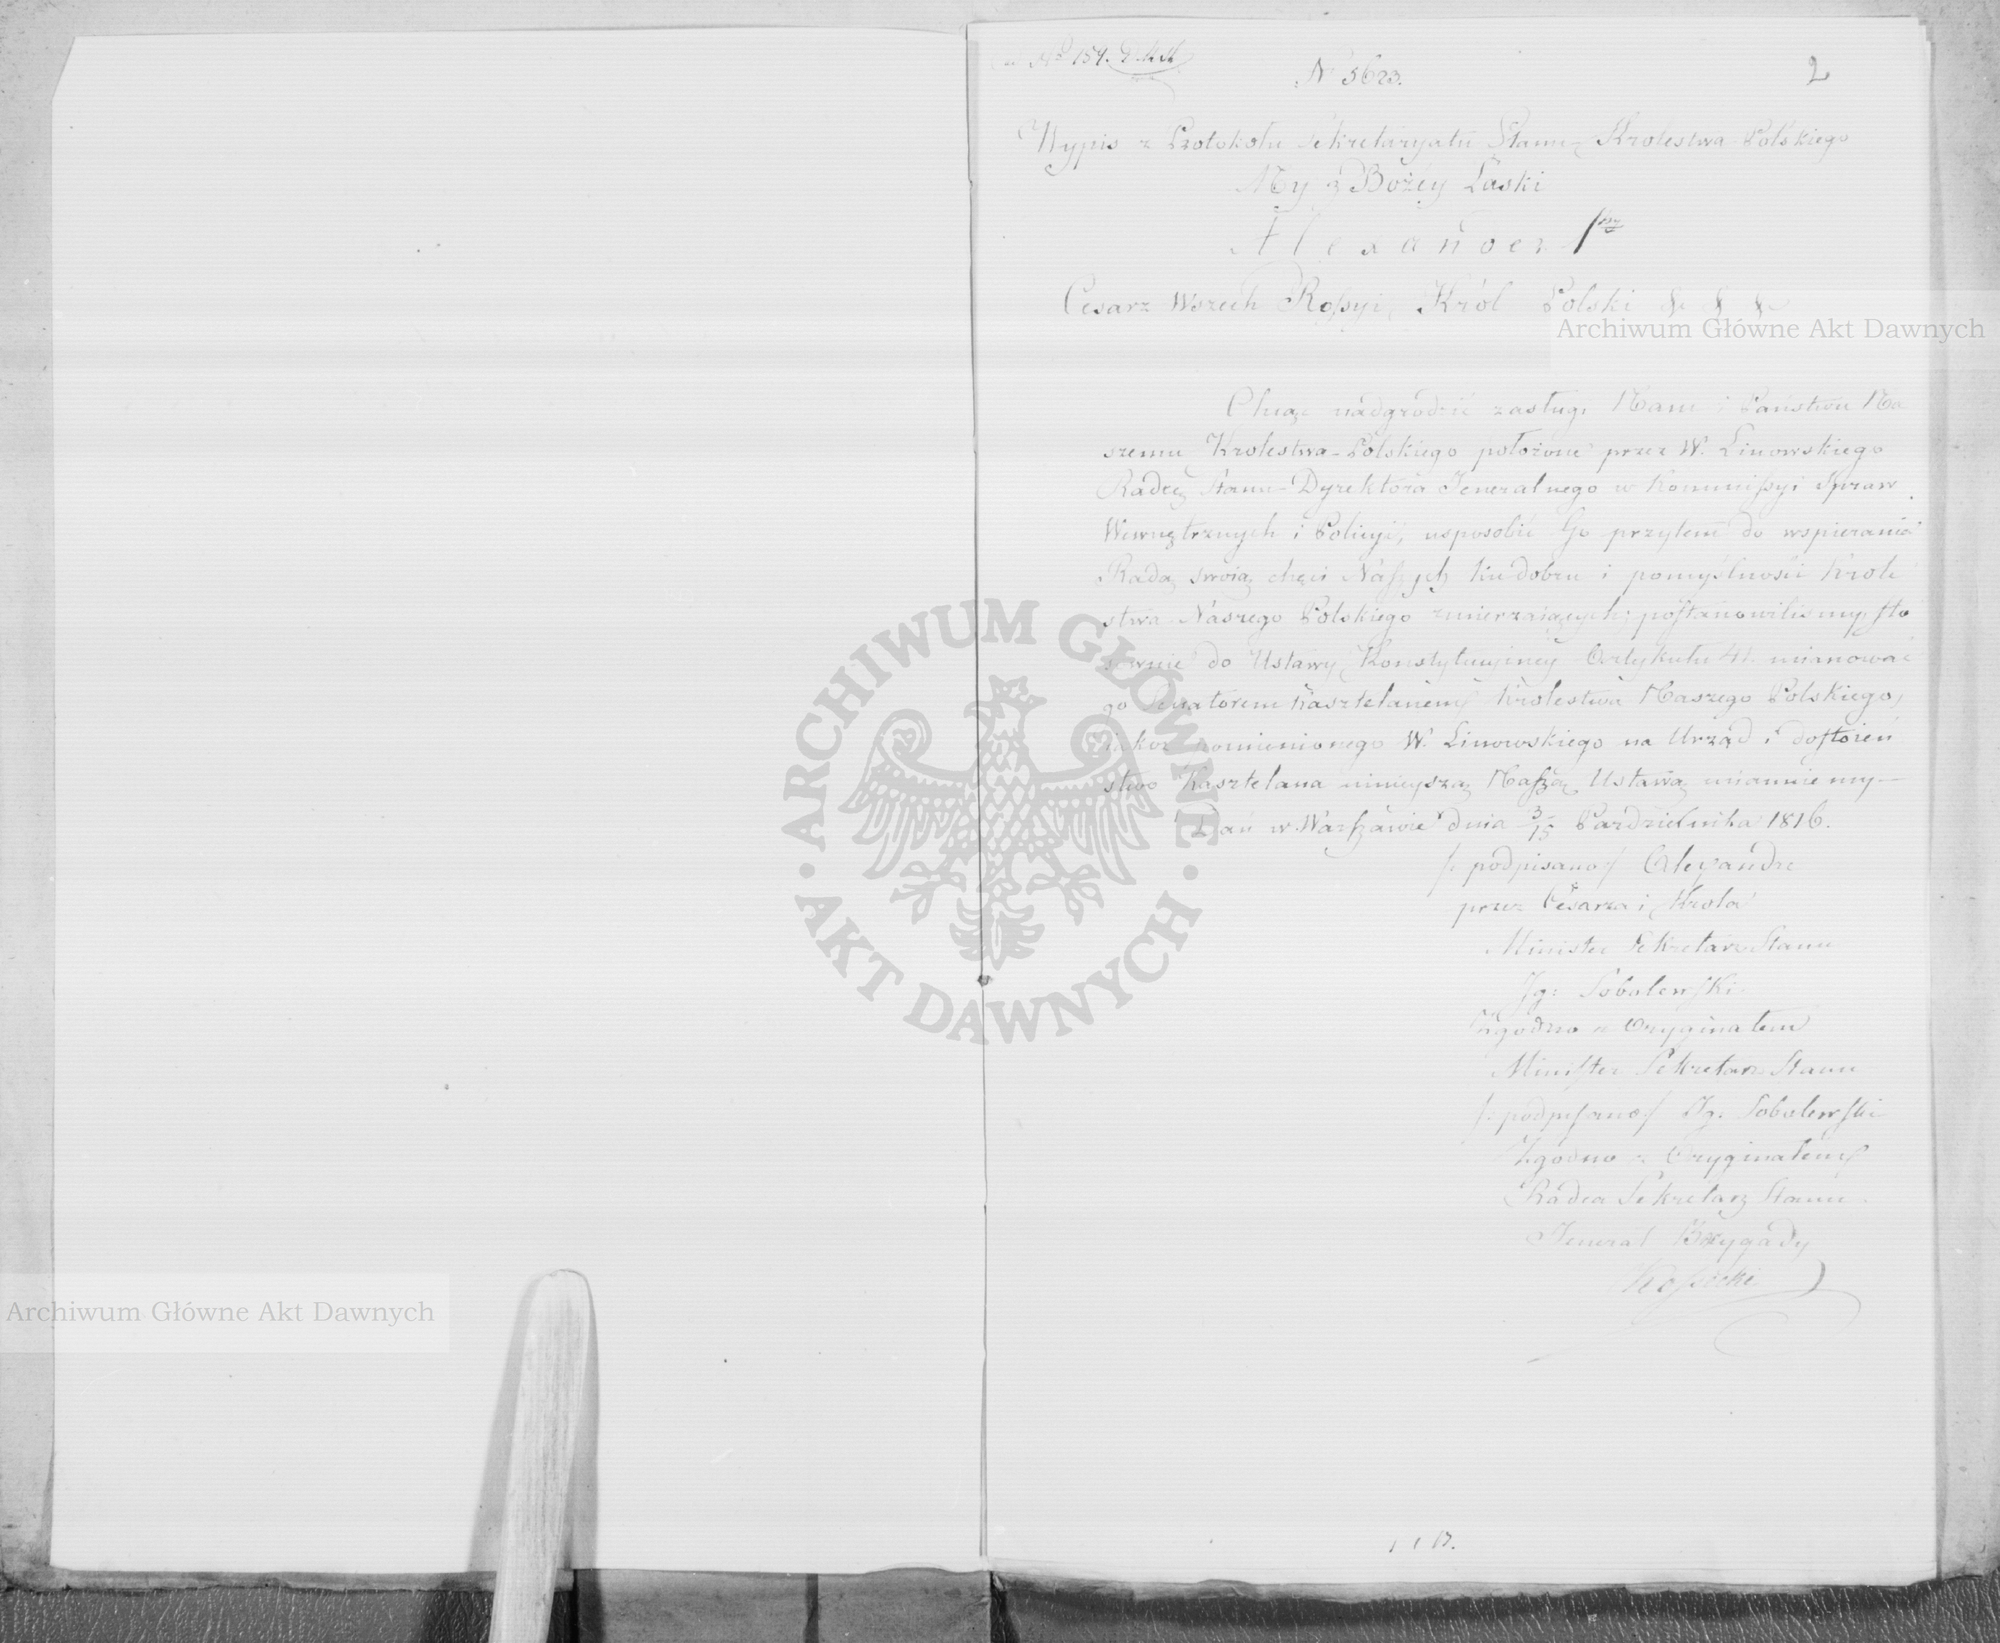 Nº 154.
Nº 5623.
2
Wypis z Protokołu Sekretaryatu Stanu Krolestwa Polskiego
My z Bożey Łaski
Alexander Iszy
Cesarz Wszech Rossyi, Król Polski & & &
Chcąc nadgrodzić zasługi Nam i Państwu Na
szemu Krolestwa Polskiego położone przez W. Linowskiego
Radcę Stanu Dyrektora Jeneralnego w Kommissyi Spraw
Wewnętrznych i Policyi, usposobić Go przytem do wspierania
Radą swoią chęci Naszych ku dobru i pomyślności Krole
stwa Naszego Polskiego zmierzaiących; postanowiliśmy sto
sownie do Ustawy Konstytucyiney Artykułu 41. mianować
go Senatorem Kasztelanem Krolestwa Naszego Polskiego,
iakoż pomienionego W. Linowskiego na Urząd i dostoień
stwo Kasztelana ninieyszą Naszą Ustawą mianuiemy —
Dan w Warszawie dnia 3/15 Pazdziernika 1816.
/: podpisano :/ Alexandre
przez Cesarza i Krola
Minister Sekretarz Stanu
Ig: Sobolewski
Zgodno z Oryginałem
Minister Sekretarz Stanu
/: podpisano :/ Ig. Sobolewski
Zgodno z Oryginałem
Radca Sekretarz Stanu
Jenerał Brygady
Kossecki
Archiwum Główne Akt Dawnych
ARCHIWUM GŁÓWNE AKT DAWNYCH
Archiwum Główne Akt Dawnych